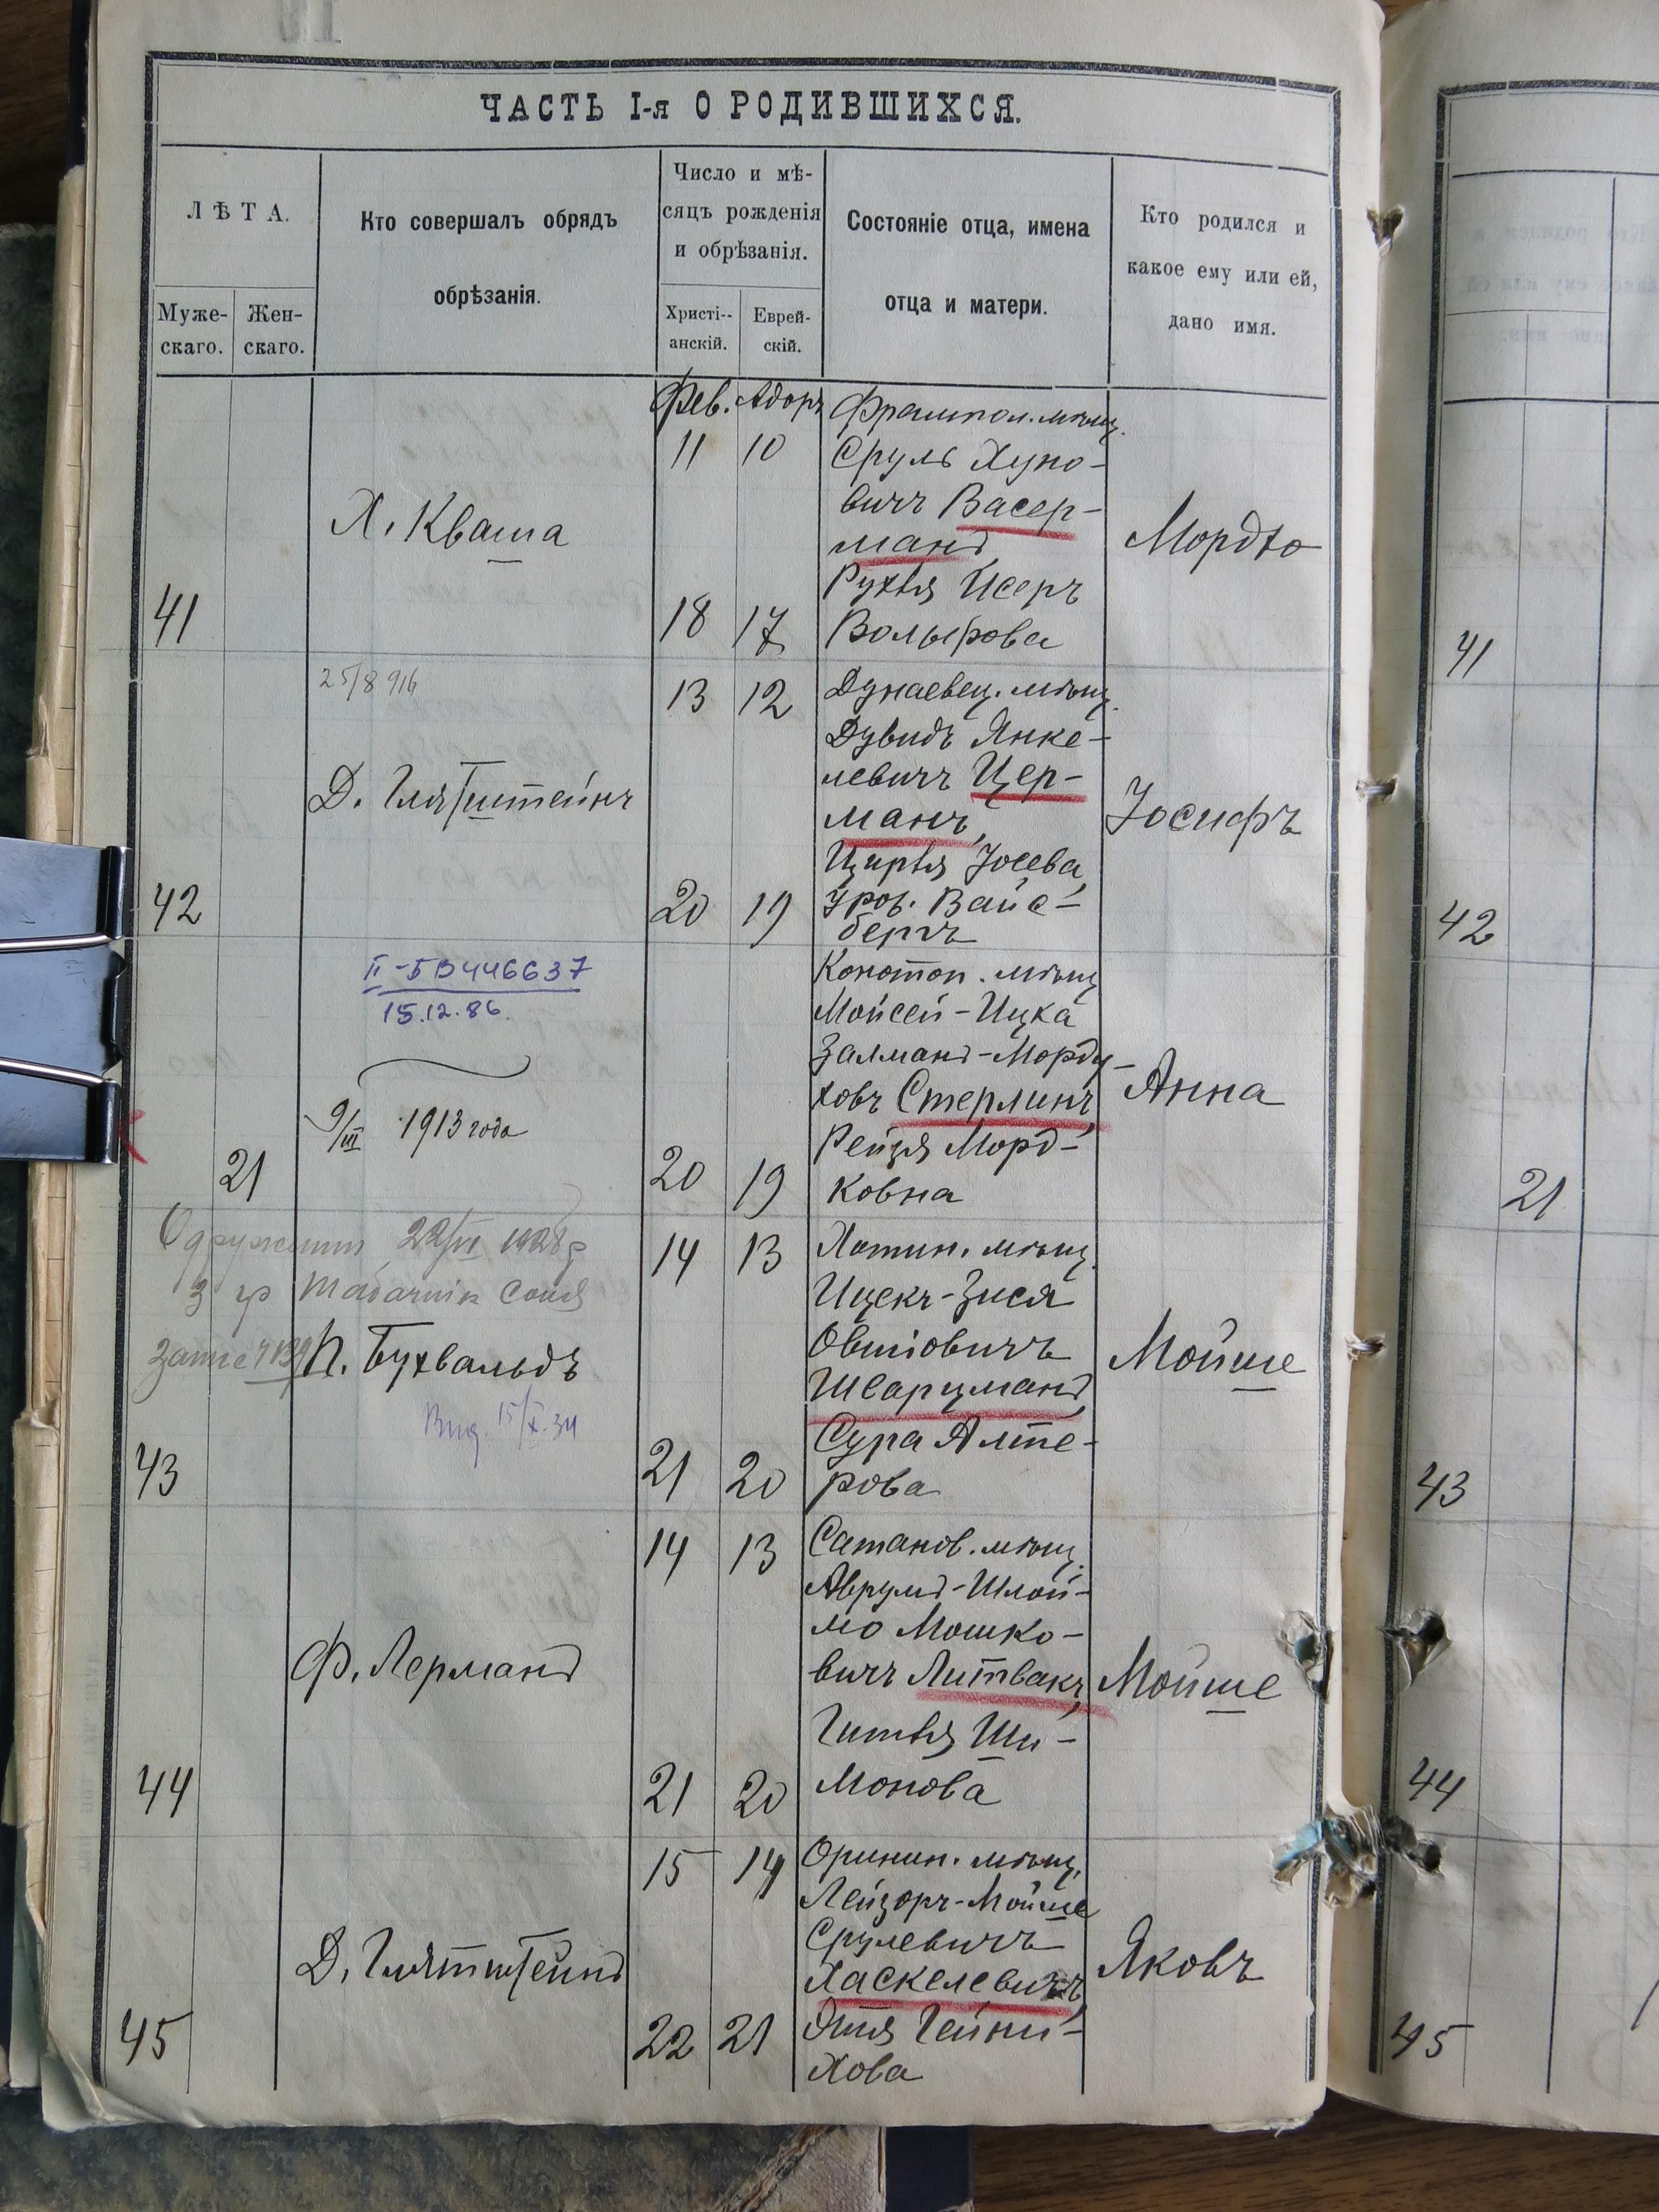 ЧАСТЬ I-я О РОДИВШИХСЯ.
ЛѢТА.
Муже-
скаго.
Жен-
скаго.
Кто совершалъ обрядъ
обрѣзанія.
Число и мѣ-
сяцъ рожденія
и обрѣзанія.
Христі--
анскій.
Еврей-
скій.
Состояніе отца, имена
отца и матери.
Кто родился и
какое ему или ей,
дано имя.
Фев. Адоръ
11 10
Х. Кваша
41
18 17
Фрампол. мѣщ.
Сруль Хуно-
вичъ Васер-
манъ,
Рухля Исеръ
Вольфова
Мордко
41
25/8 916
13 12
Д. Глятштейнъ
42
20 19
Дунаевец. мѣщ.
Дувидъ Янке-
левичъ Цер-
манъ,
Цирля Іосева,
урож. Вайс-
бергъ
Іосифъ
42
II-БВ446637
15.12.86.
9/III 1913 года
21
20 19
Конотоп. мѣщ
Мойсей-Ицка
Залманъ-Морду-
ховъ Стерлинъ,
Рейзя Морд-
ковна
Анна
21
Одружени 22/VI 1928 р
з гр Соня
14 13
П. Бухвальдъ
Вид. 15/X. 34
43
21 20
Хотин. мѣщ.
Ицекъ-Зися
Овшіовичъ
Шварцманъ,
Сура Алте-
рова
Мойше
43
14 13
Ф. Лерманъ
44
21 20
Сатанов. мѣщ.
Аврумъ-Шлой-
мо Мошко-
вичъ Литвакъ,
Гитля Ши-
монова
Мойше
44
15 14
Д. Глятштейнъ
45
22 21
Оринин. мѣщ.
Лейзоръ-Мойше
Срулевичъ
Хаскелевичъ,
Этя Гейни-
хова
Яковъ
45